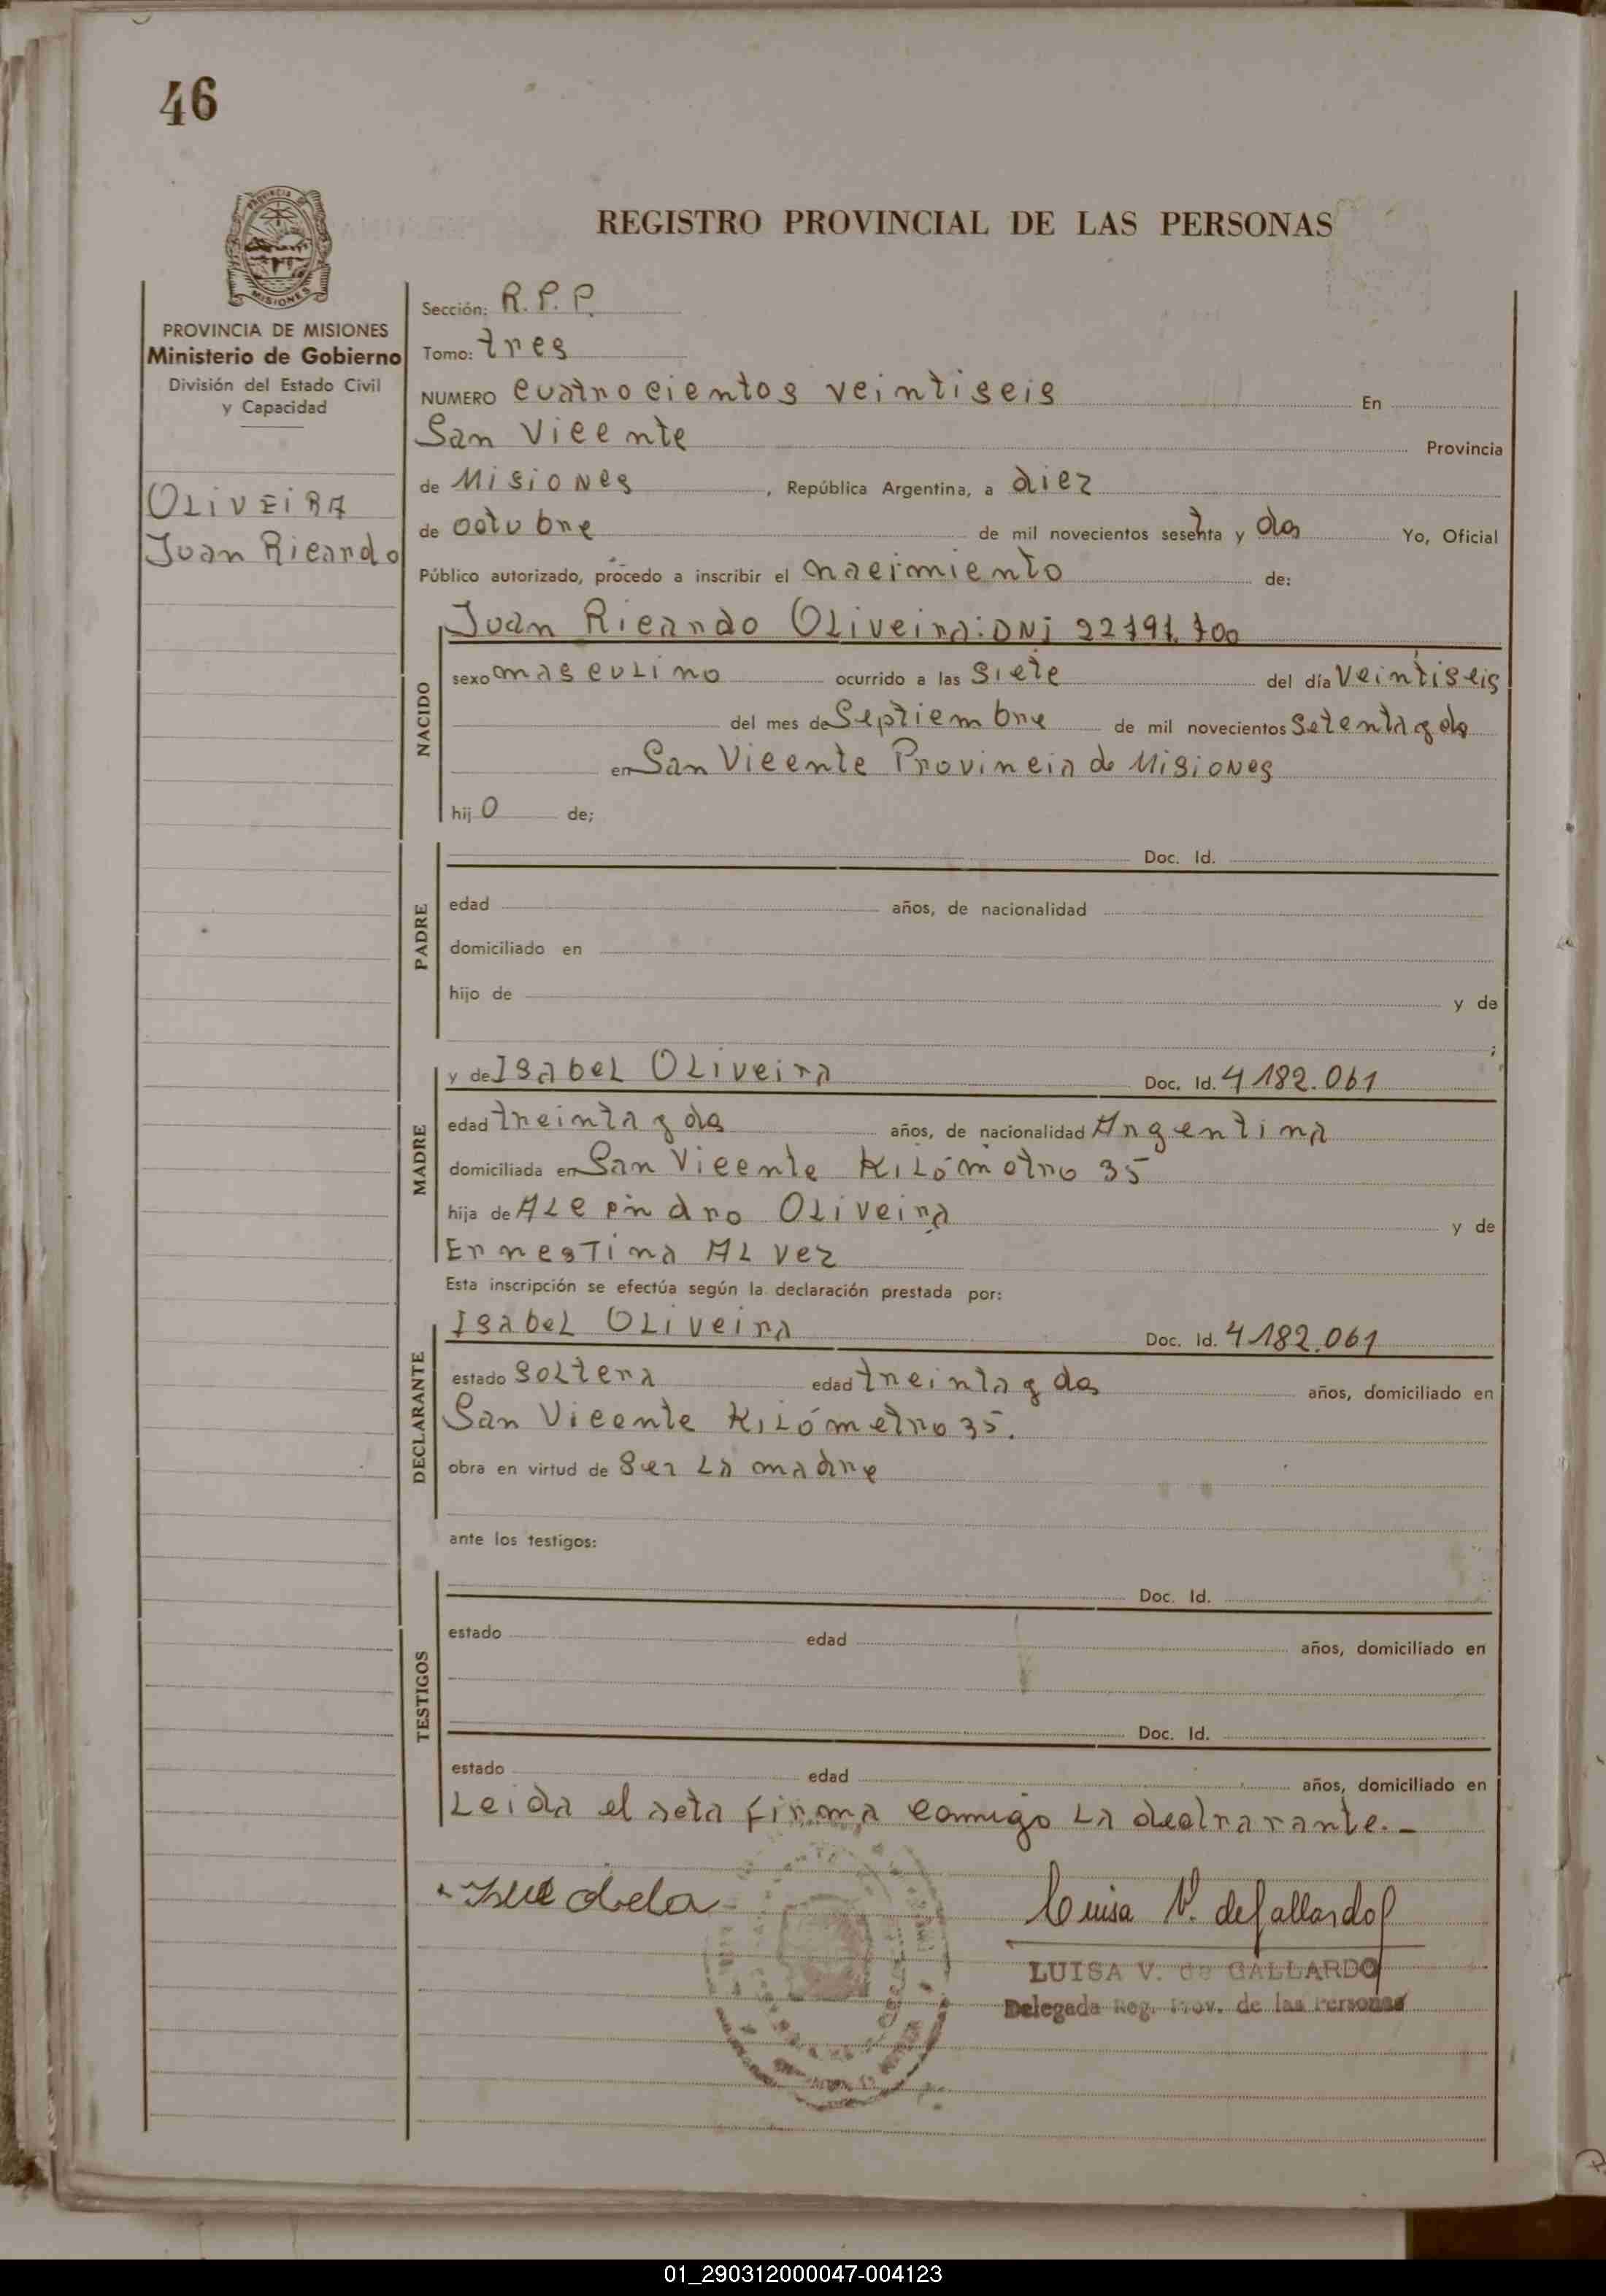 46
REGISTRO PROVINCIAL DE LAS PERSONAS
PROVINCIA DE MISIONES
Ministerio de Gobierno
División del Estado Civil
y Capacidad
OLIVEIRA
Juan Ricardo
Sección: R.P.P.
Tomo: tres
NUMERO cuatrocientos veintiseis En
San Vicente Provincia
de Misiones, República Argentina, a diez
de octubre de mil novecientos setenta y dos Yo, Oficial
Público autorizado, procedo a inscribir el nacimiento de:
NACIDO
Juan Ricardo Oliveira: DNi
sexo masculino ocurrido a las Siete del día veintiseis
del mes de Septiembre de mil novecientos setenta y dos
en San Vicente Provincia de Misiones
hijo de;
PADRE
Doc. Id.
edad años, de nacionalidad
domiciliado en
hijo de y de
;
MADRE
y de Isabel Oliveira Doc. Id. 4182.061
edad treinta y dos años, de nacionalidad Argentina
domiciliada en San Vicente Kilómetro 35
hija de Oliveira y de
Ernestina Alvez
Esta inscripción se efectúa según la declaración prestada por:
DECLARANTE
Isabel Oliveira Doc. Id. 4182.061
estado Soltera edad treinta y dos años, domiciliado en
San Vicente Kilómetro 35.
obra en virtud de Ser La madre
ante los testigos:
TESTIGOS
Doc. Id.
estado edad años, domiciliado en
Doc. Id.
estado edad años, domiciliado en
Leida el acta firma conmigo La declarante.-
Luisa V. de Gallardo
LUISA V. de GALLARDO
Delegada Reg. Prov. de las Personas
01_290312000047-004123